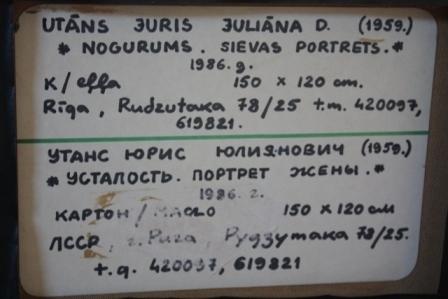 UTĀNS JURIS JULIĀNA D. (1959.)
* NOGURUMS. SIEVAS PORTRETS.*
1986.g.
K/eļļa 150 x 120 cm.
Rīga, Rudzutaka 78/25 t.m. 420097,
619821.
УТАНС ЮРИС ЮЛИЯНОВИЧ (1959.)
* УСТАЛОСТЬ. ПОРТРЕТ ЖЕНЫ.*
1986. г.
КАРТОН/МАСЛО 150 x 120 см
ЛССР, г. Рига, Рудзутака 78/25.
т.д. 420097, 619821